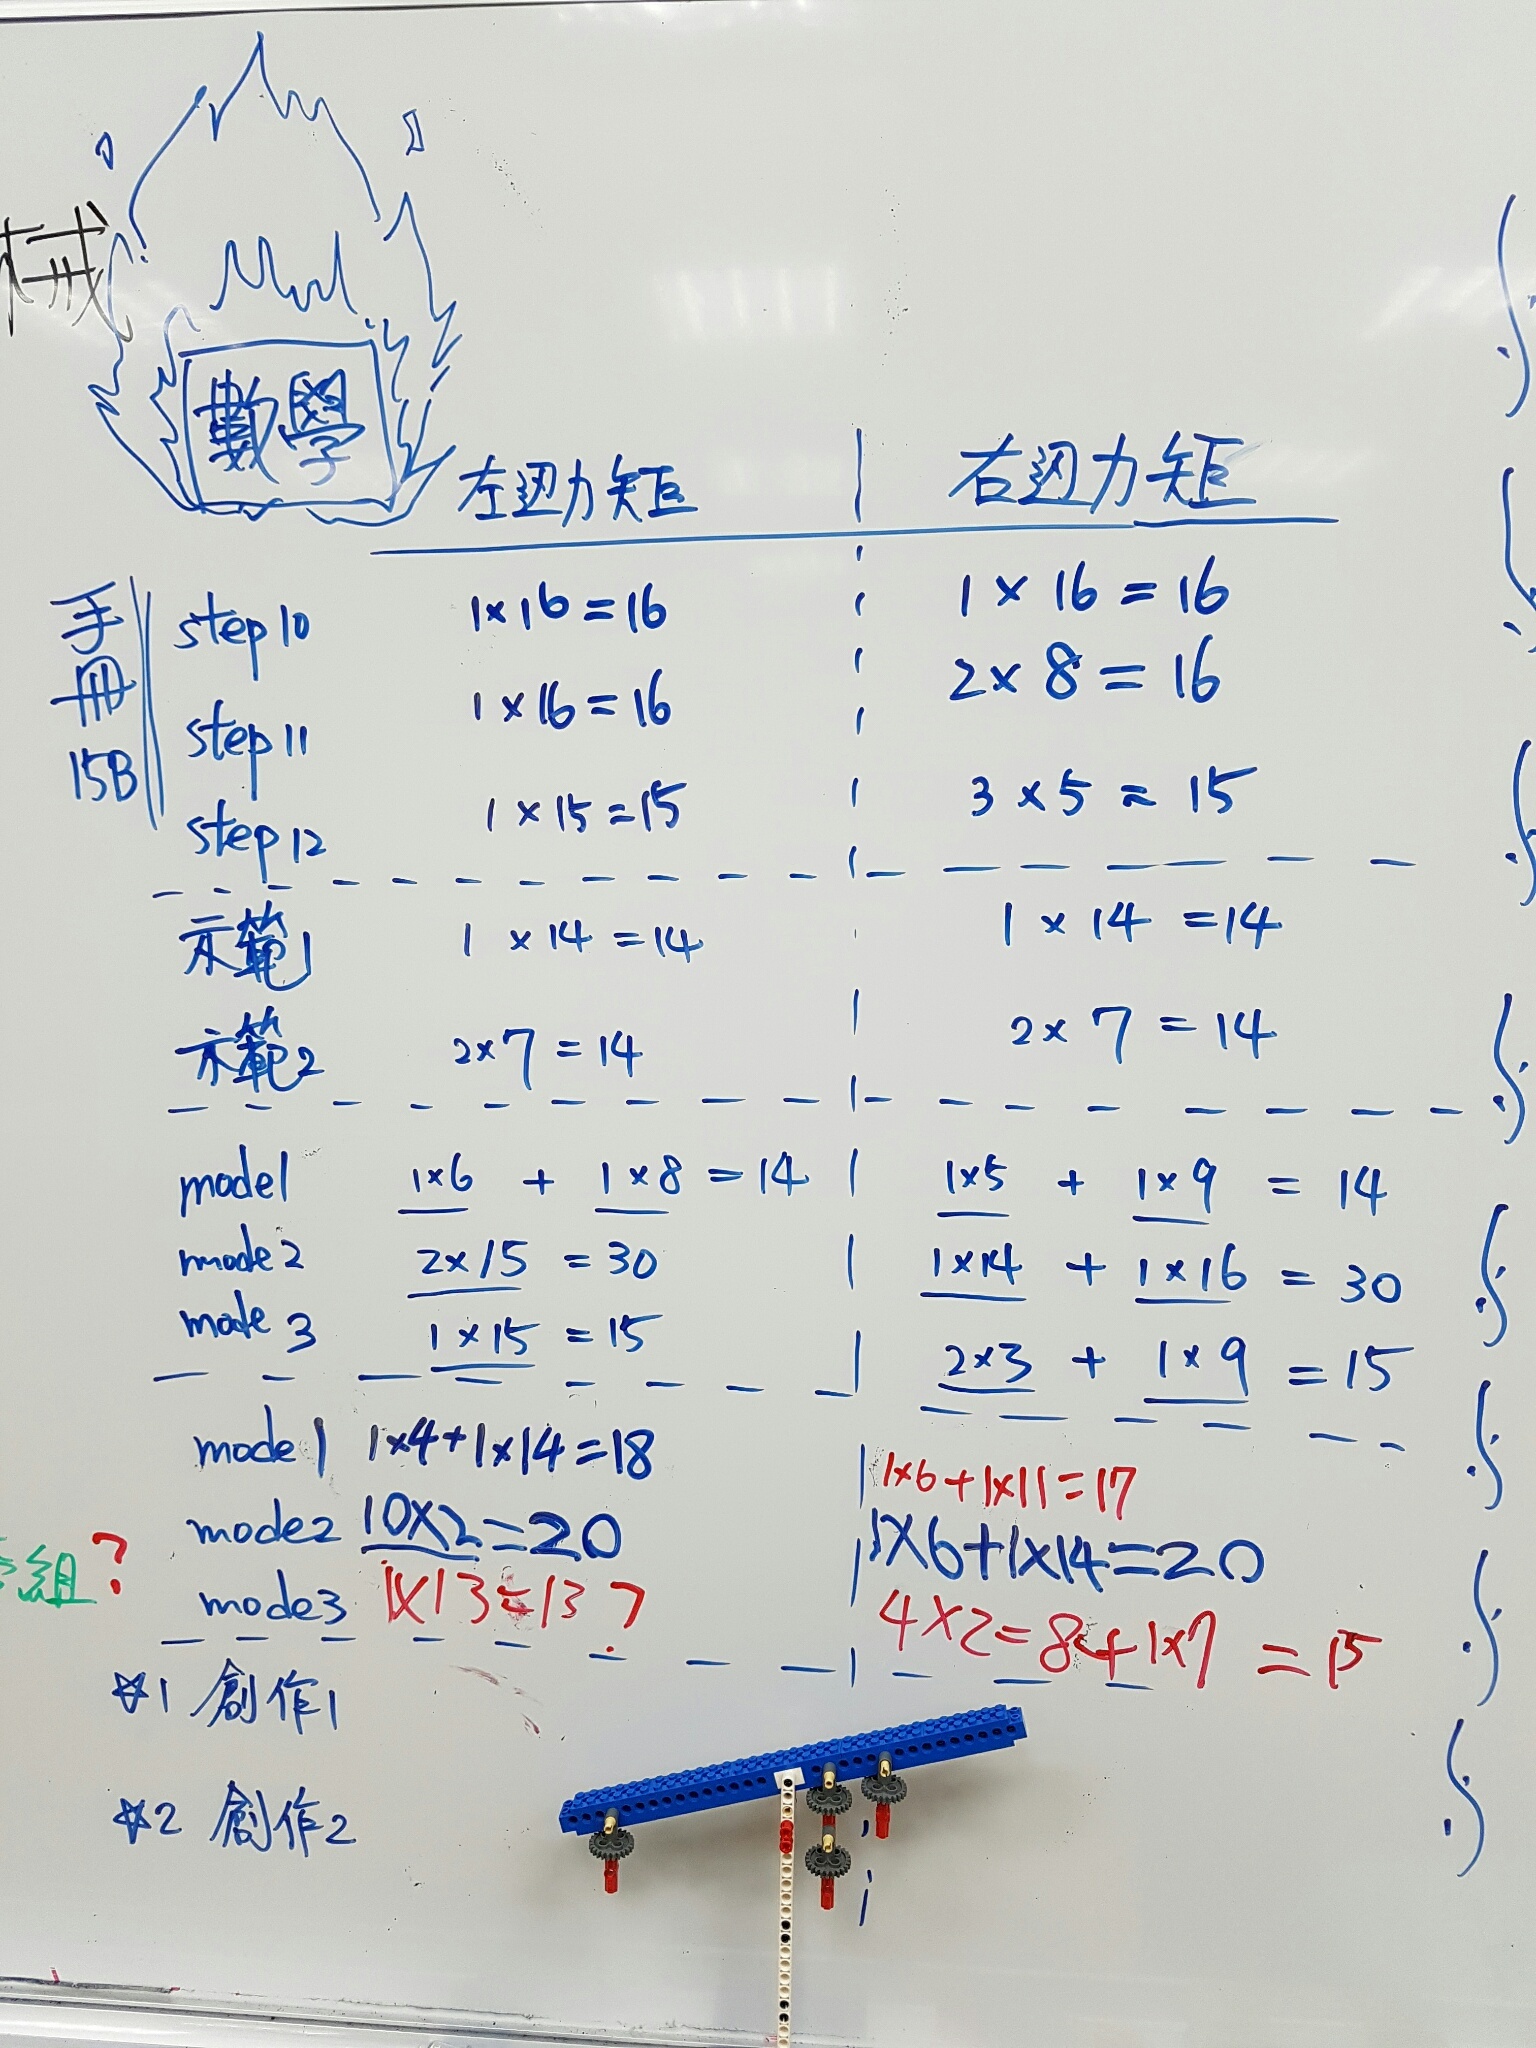 械
數學
左边力矩 | 右边力矩
手冊 15B
step 10 1×16=16 1×16=16
step 11 1×16=16 2×8=16
step 12 1×15=15 3×5=15
示範1 1×14=14 1×14=14
示範2 2×7=14 2×7=14
mode1 1×6 + 1×8 = 14 1×5 + 1×9 = 14
mode2 2×15 = 30 1×14 + 1×16 = 30
mode3 1×15 = 15 2×3 + 1×9 = 15
mode1 1×4+1×14=18 1×6+1×11=17
mode2 10×2=20 1×6+1×14=20
組?
mode3 1×13=13? 4×2=8+1×7=15
☆1 創作1
☆2 創作2